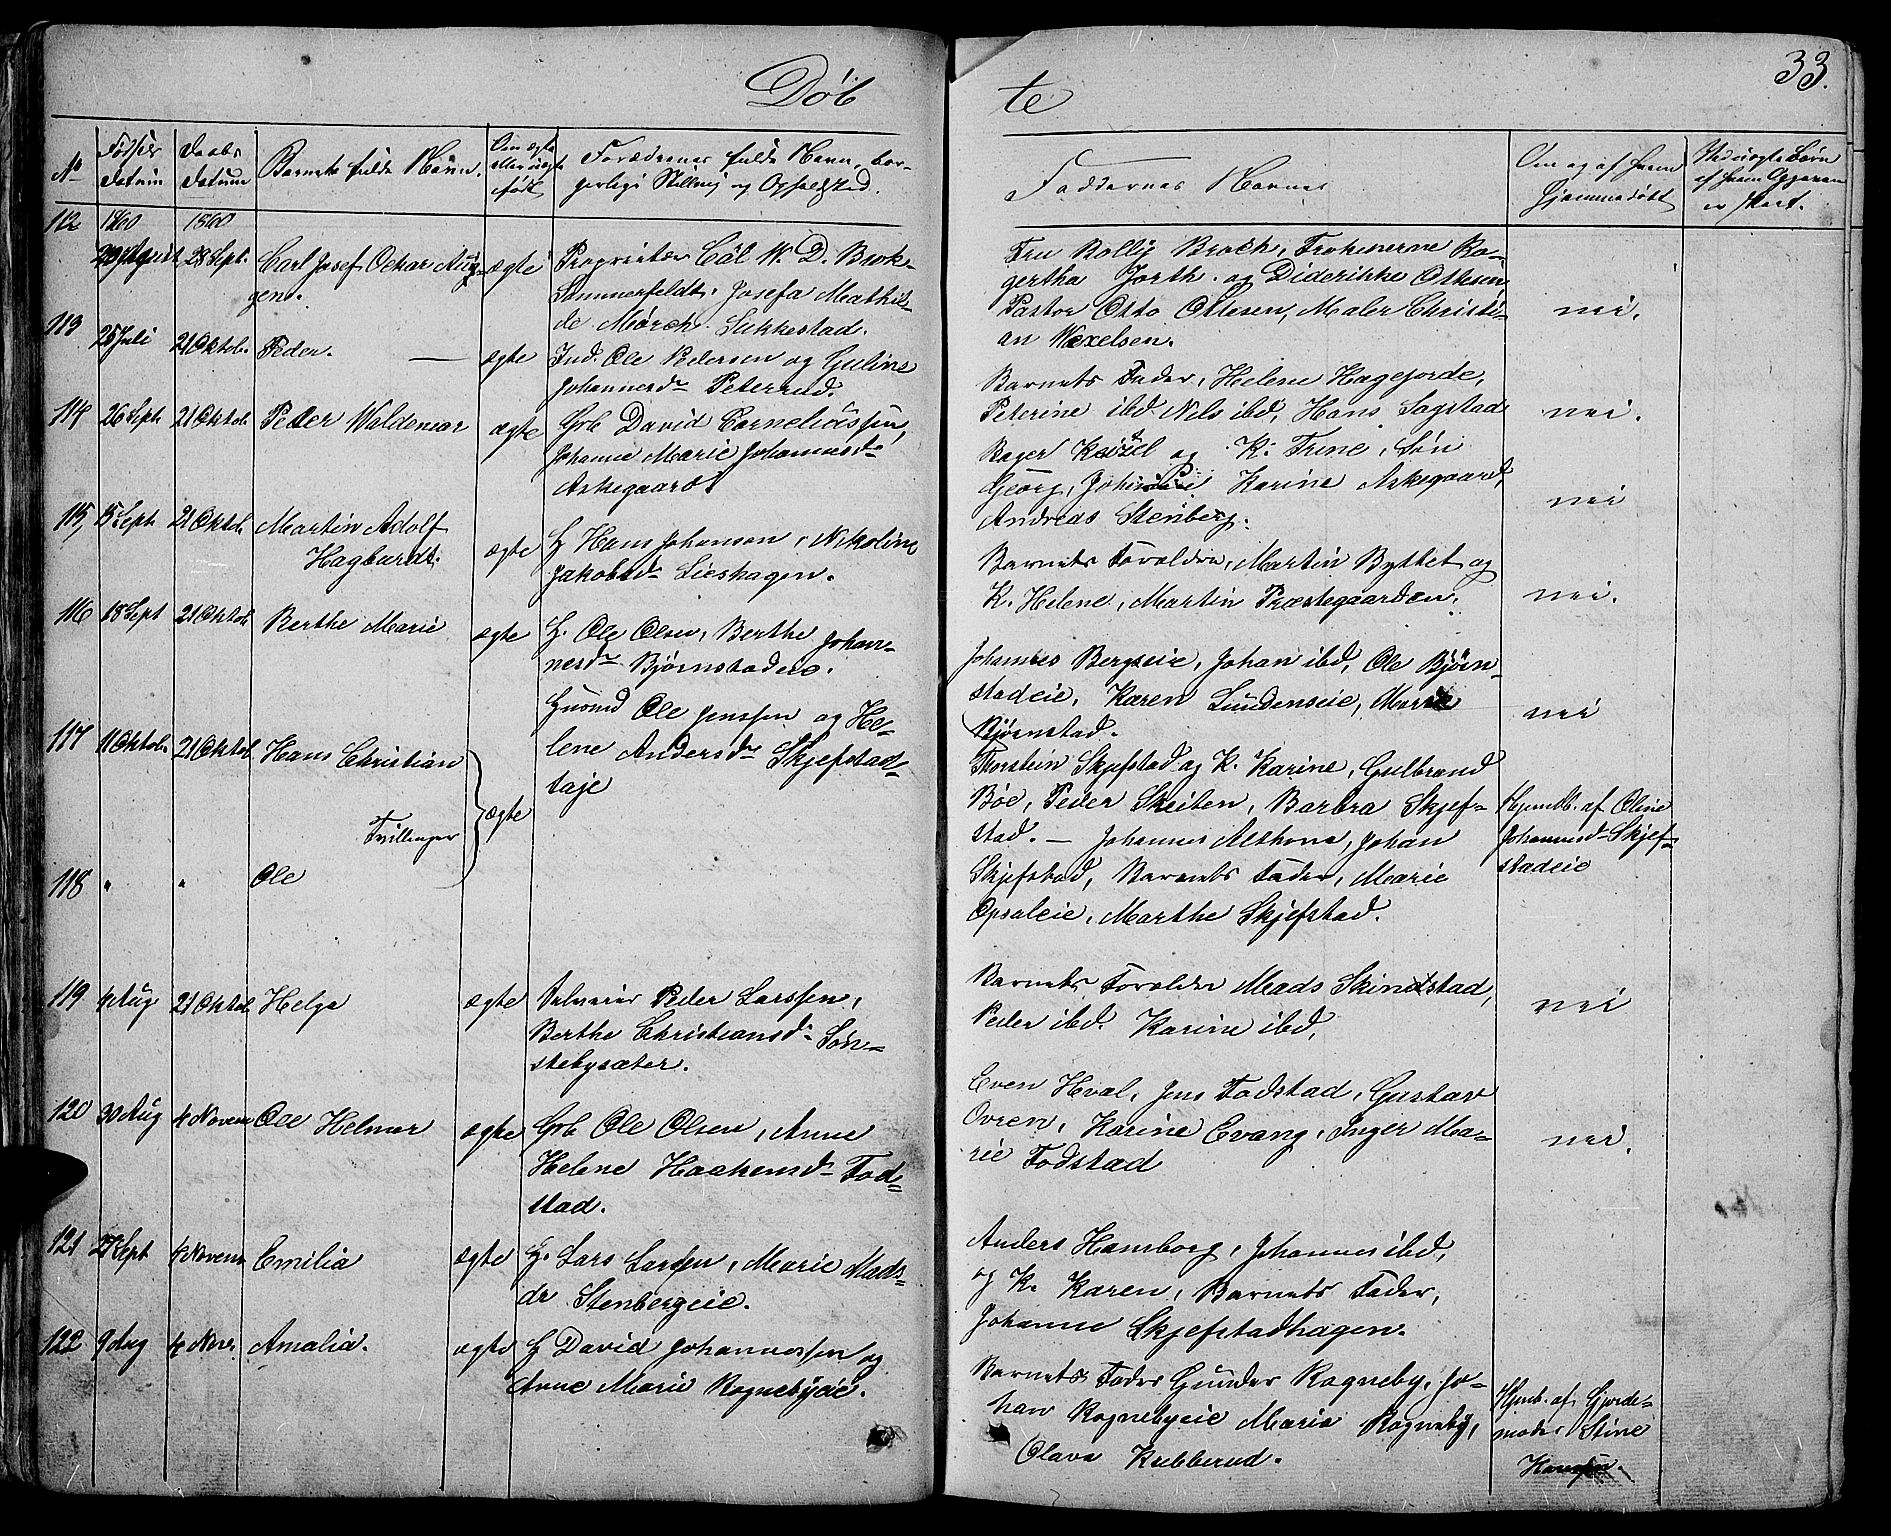 Døb
te
33.
No
Fødsels
datum
Daabs
datum
Barnets fulde Navn.
Om ægte
eller uægte
født
Forældrenes fulde Navn, bor-
gerlige Stilling og Opholdsted.
Faddernes Navne
Om og af hvem
hjemmedøbt
112
1860
1860
28 Sept.
Carl Josef Oskar Eugen
gen.
ægte
Proprietær W. D. Brok
Sommerfeldt, Josefa Mathil-
de Mørch. Sukkestad.
Fru Bolly Broch, Frøknerne
gertha Jorth. og Diderikke Ottesen
Pastor Otto Ottesen, Maler Christi-
an Wexelsen.
nei.
113
25 Juli
21 Oktob.
Peder. —
ægte
Ind. Ole Pedersen og Guline
Johannesdr Peterrud.
Barnets Fader, Helene Hagejorde,
Peterine ibd, Nils ibd, Hans Sogstad
nei.
114
26 Sept.
21 Oktob.
Peder Waldemar
ægte
Grb David Corneliussen,
Johanne Marie Johannesdr
Askegaard
og K. Trine, Søn
Georg, Karine Askegaard,
Andreas Stenberg.
nei
115,
15 Sept.
21 Oktob.
Martin Adolf
Hagbardt.
ægte
H Hans Johansen, Nikoline
Jakobsdr Lieshagen.
Barnets Forældre, Martin Byttet og
K. Helene, Martin Præstegaarden.
nei.
116
18 Sept
21 Oktob
Berthe Marie
ægte
H. Ole Olsen, Berthe Johan-
nesdr Bjørnstadeie.
Johannes Bergseie, Johan ibd, Ole Bjørn-
stadeie, Karen Lundenseie, Marie
Bjørnstad.
nei
117
11 Oktob.
21 Oktob.
Hans Christian
Tvillinger
ægte
Huusmd Ole Jenssen og He-
lene Andersdr Skjefstad-
taje
Thorstein Skjefstad og K. Karine, Gulbrand
Bøe, Peder Sletten, Barbra Skjef-
stad. — Johannes Alhone, Johan
Skjefstad, Barnets Fader, Marie
Opsaleie, Marthe Skjefstad.
Hjmdb. af Oline
Johannesdr Skjef-
stadeie
118
"
"
Ole
119
4 Aug
21 Oktob.
Helga
ægte
Selveier Peder Larssen,
Berthe Christiansdr Søn-
stebysæter.
Barnets Forældre Mads Skindstad,
Peder ibd. Karine ibd,
nei
120
30 Aug
4 Novem
Ole Helmer
ægte
Grb Ole Olsen, Anne
Helene Haakensdr Fod-
stad.
Even Hval, Jens Fodstad, Gustav
Ovren, Karine Evang, Inger Ma-
rie Fodstad
nei.
121
27 Sept
4 Novem
Emilia
ægte
H. Lars Larssen, Marie Mads-
dr Stenbergeie.
Anders Hamborg, Johannes ibd,
og K. Karen, Barnets Fader,
Johanne Skjefstadhagen.
122
9 Aug
4 Nov.
Amalia.
ægte
H David Johannessen og
Anne Marie Rognebyeie.
Barnets Fader Gunder Rogneby, Jo-
han Rognebyeie Maria Rogneby,
Olava Kubberud.
Hjmb. af Gjorde-
moder Stine
Hansen.